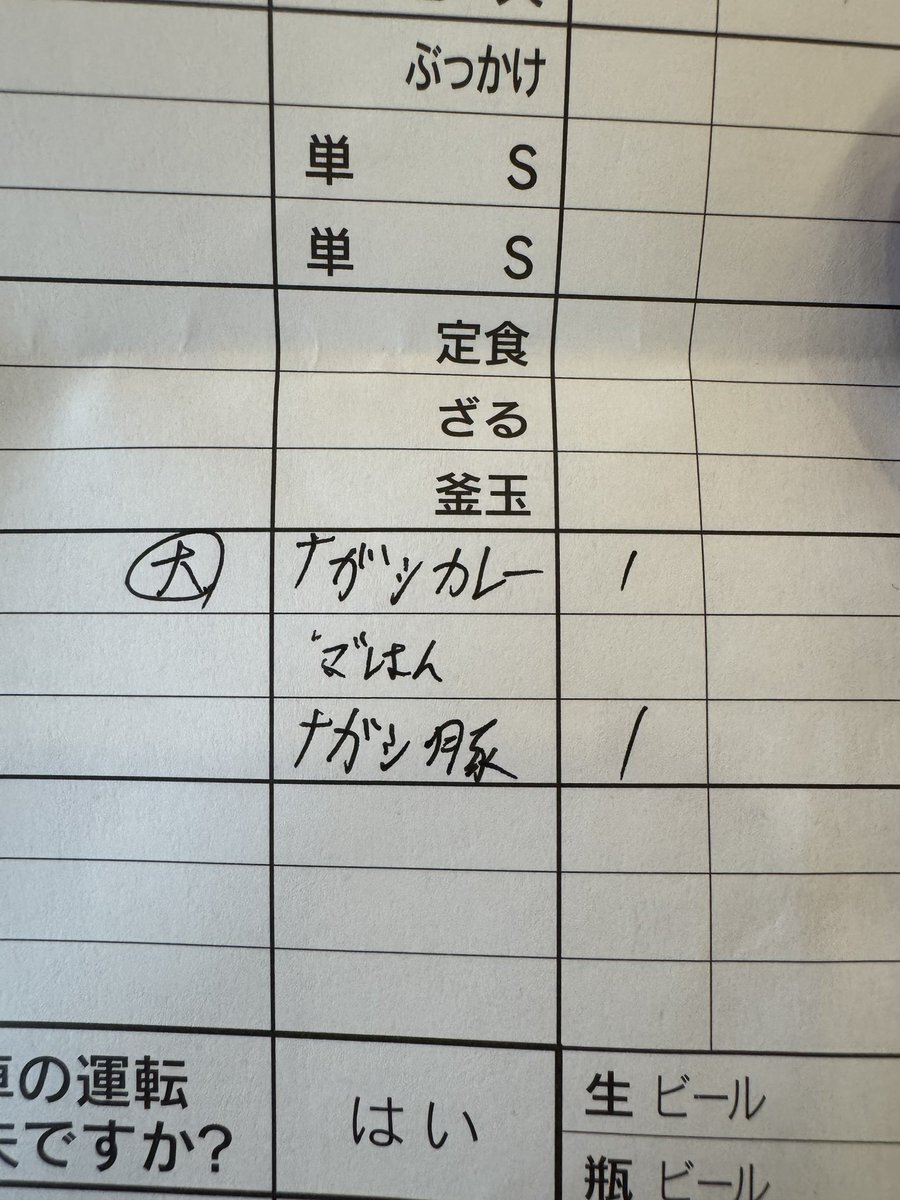 ぶっかけ
単 S
単 S
定食
ざる
釜玉
大 ナガシカレー 1
ごはん
ナガシ豚 1
の運転
ですか? はい
生 ビール
瓶 ビール